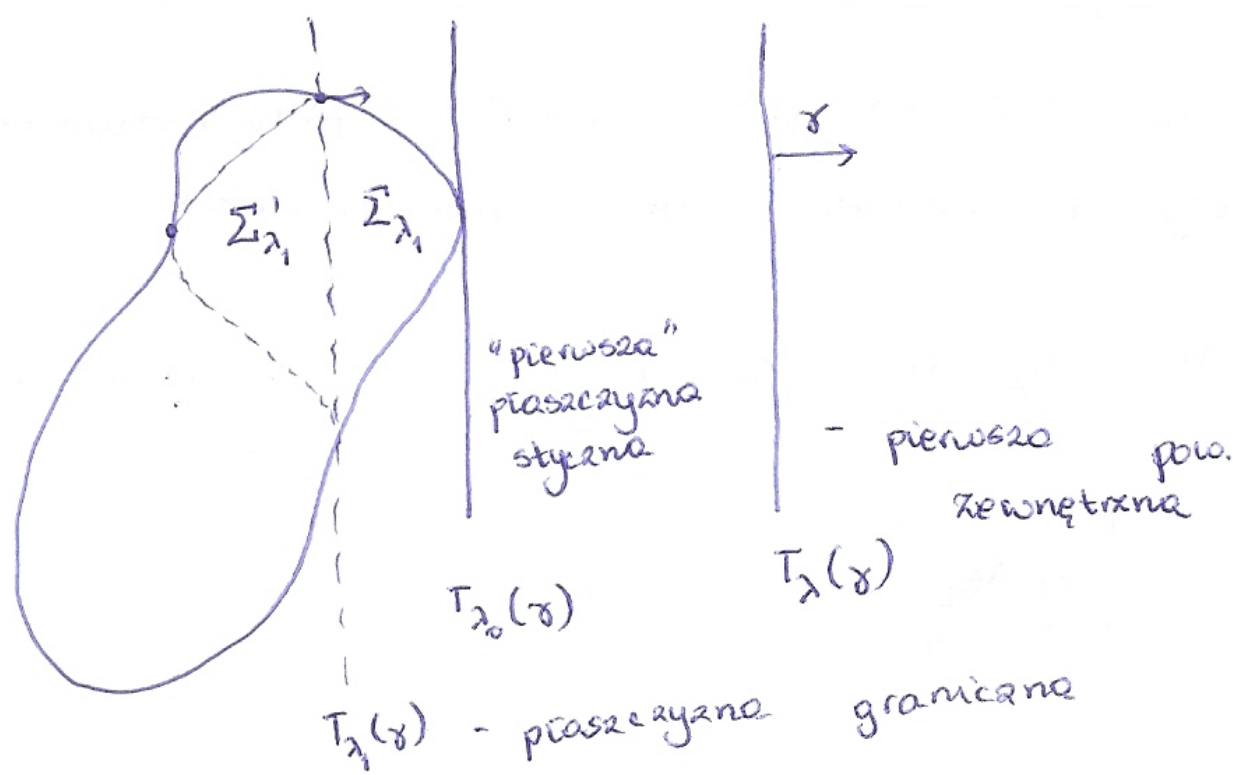 γ
Σ'λ₁
Σλ₁
"pierwsza"
płaszczyzna
styczna
- pierwsza pow.
zewnętrzna
Tλ₀(γ)
Tλ(γ)
Tλ₁(γ) - płaszczyzna graniczna